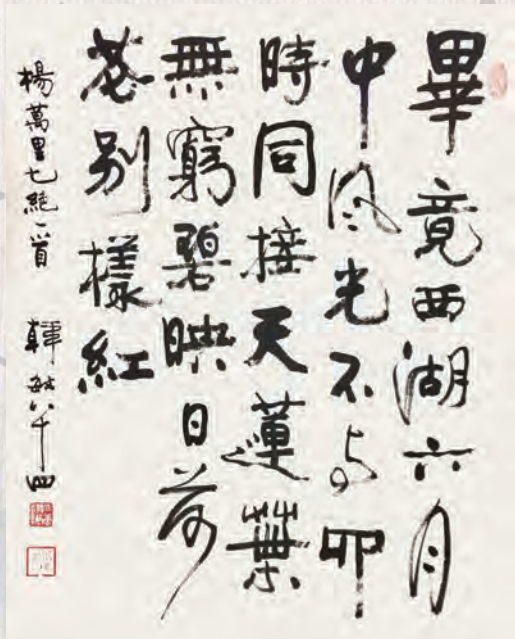 畢竟西湖六月
中风光不与四
時同接天蓮葉
無窮碧映日荷
花别樣紅
楊萬里七絕一首 韓敏八十四